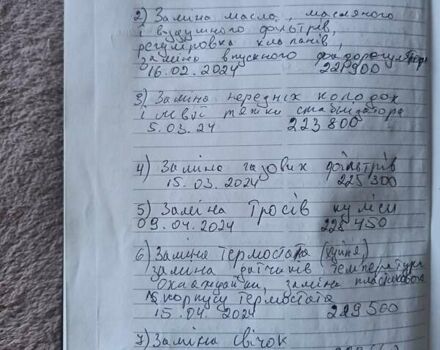 2) Заміна масла, масляного
і воздушного фільтрів,
регуліровка клапанів,
заміна впускного
16.02.2024 221900
3) Заміна передніх колодок
і лівої тяжки стабілізатора
5.03.24 223 800
4) Заміна газових фільтрів
15.03.2024 225 300
5) Заміна Тросів куліси
09.04.2024 228 450
6) Заміна Термостата
заміна датчиків температури
заміна пластикового
корпусу термостата
15.04.2024 229500
7) Заміна свічок